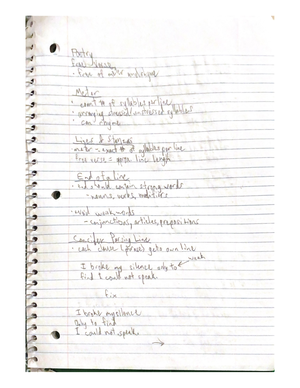 Poetry
Free-verse
• free of meter and rhyme
Meter
• count # of syllables per line
• arranging stressed/unstressed syllables
• can rhyme
Lines & Stanzas
meter = count # of syllables per line
free verse = open line length
End of a line
• end should contain strong words
- nouns, verbs, modifiers
• avoid weak words
- conjunctions, articles, prepositions
Consider Parsing Line
• each clause (phrase) gets own line
I broke my silence only to weak
find I could not speak
Fix
I broke my silence
Only to find
I could not speak
→